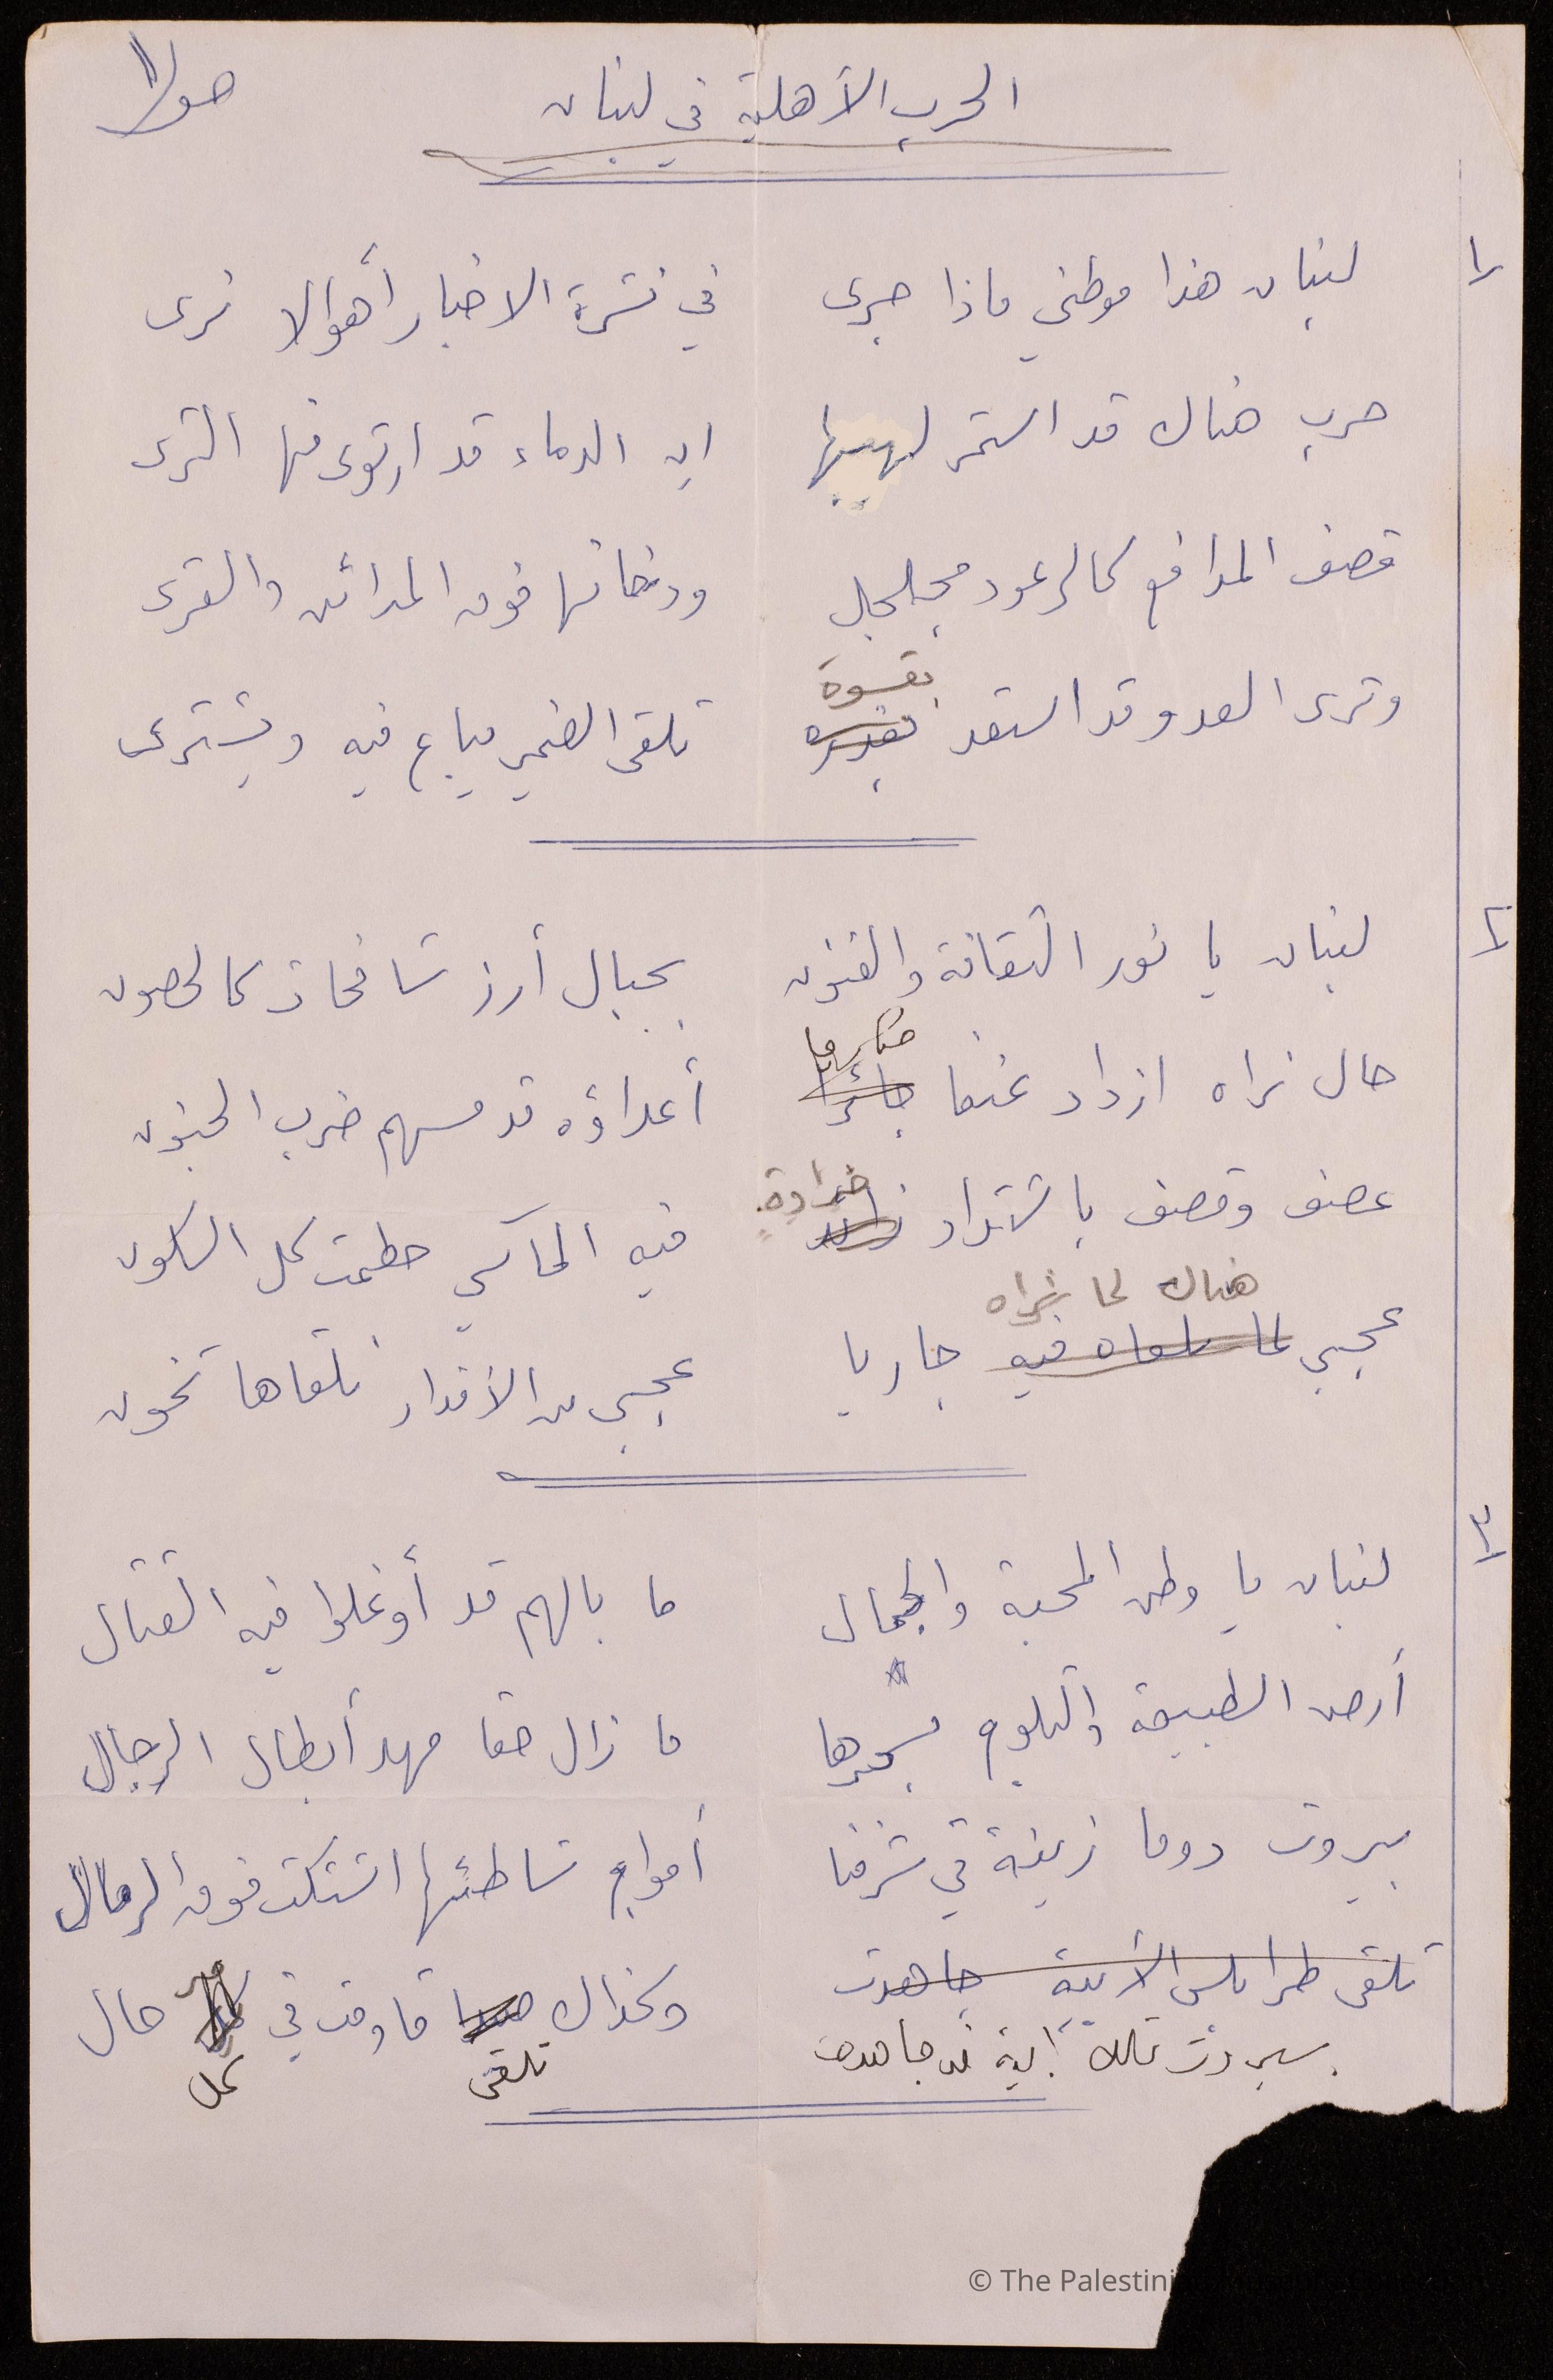 الحرب الأهلية في لبنان
١
لبنان هذا موطني ماذا جرى في نشرة الاخبار أهوالا نرى
حرب هناك قد استمر لهيبها ان الدماء قد ارتوى منها الثرى
قصف المدافع كالرعود مجلجل ودخانها فوق المدائن والقرى
بقسوة
وترى العدو قد استعد تلقى الضمير يباع فيه ويشترى
٢
لبنان يا نور الثقافة والفنون بجبال أرز شامخات كالحصون
حال نراه ازداد عنفا جائرا أعداؤه قد مسهم ضرب الجنون
ضراوة
عصف وقصف باشتداد فيه المآسي حطمت كل السكون
هناك لما نراه
عجبي لما نلقاه فيه جاريا عجبي من الأقدار نلقاها تخون
٣
لبنان يا وطن المحبة والجمال ما بالهم قد أوغلوا فيه القتال
أرض الطبيعة والثلوج بسحرها ما زال حقا مهد أبطال الرجال
بيروت دوما زينة في شرقنا أمواج شاطئها اشتكت فوق الرمال
تلقى طرابلس الأبية جاهدت وكذاك قاومت في حال
بيروت تلك أبية قد جاهدت تلقى كل
© The Palestini